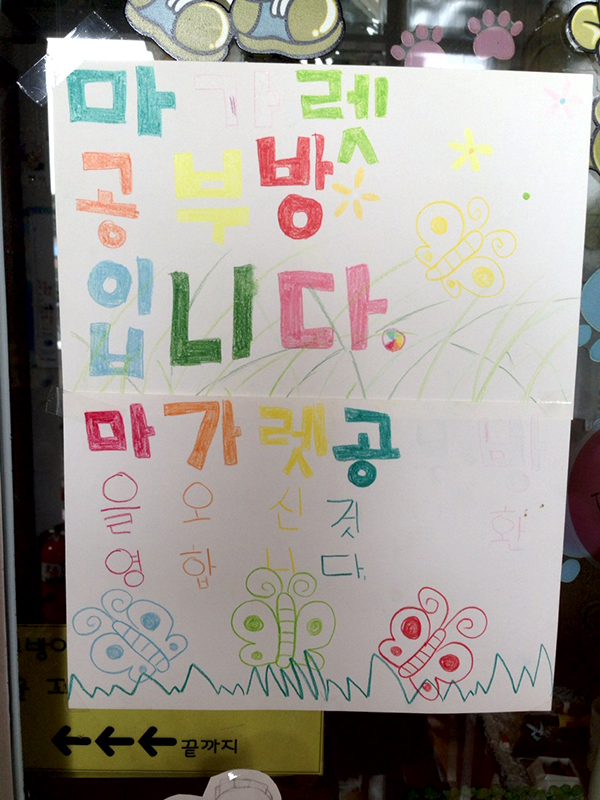 마가렛
공부방
입니다.
마가렛공부방
을 오신 것 환
영합니다.
←←← 끝까지